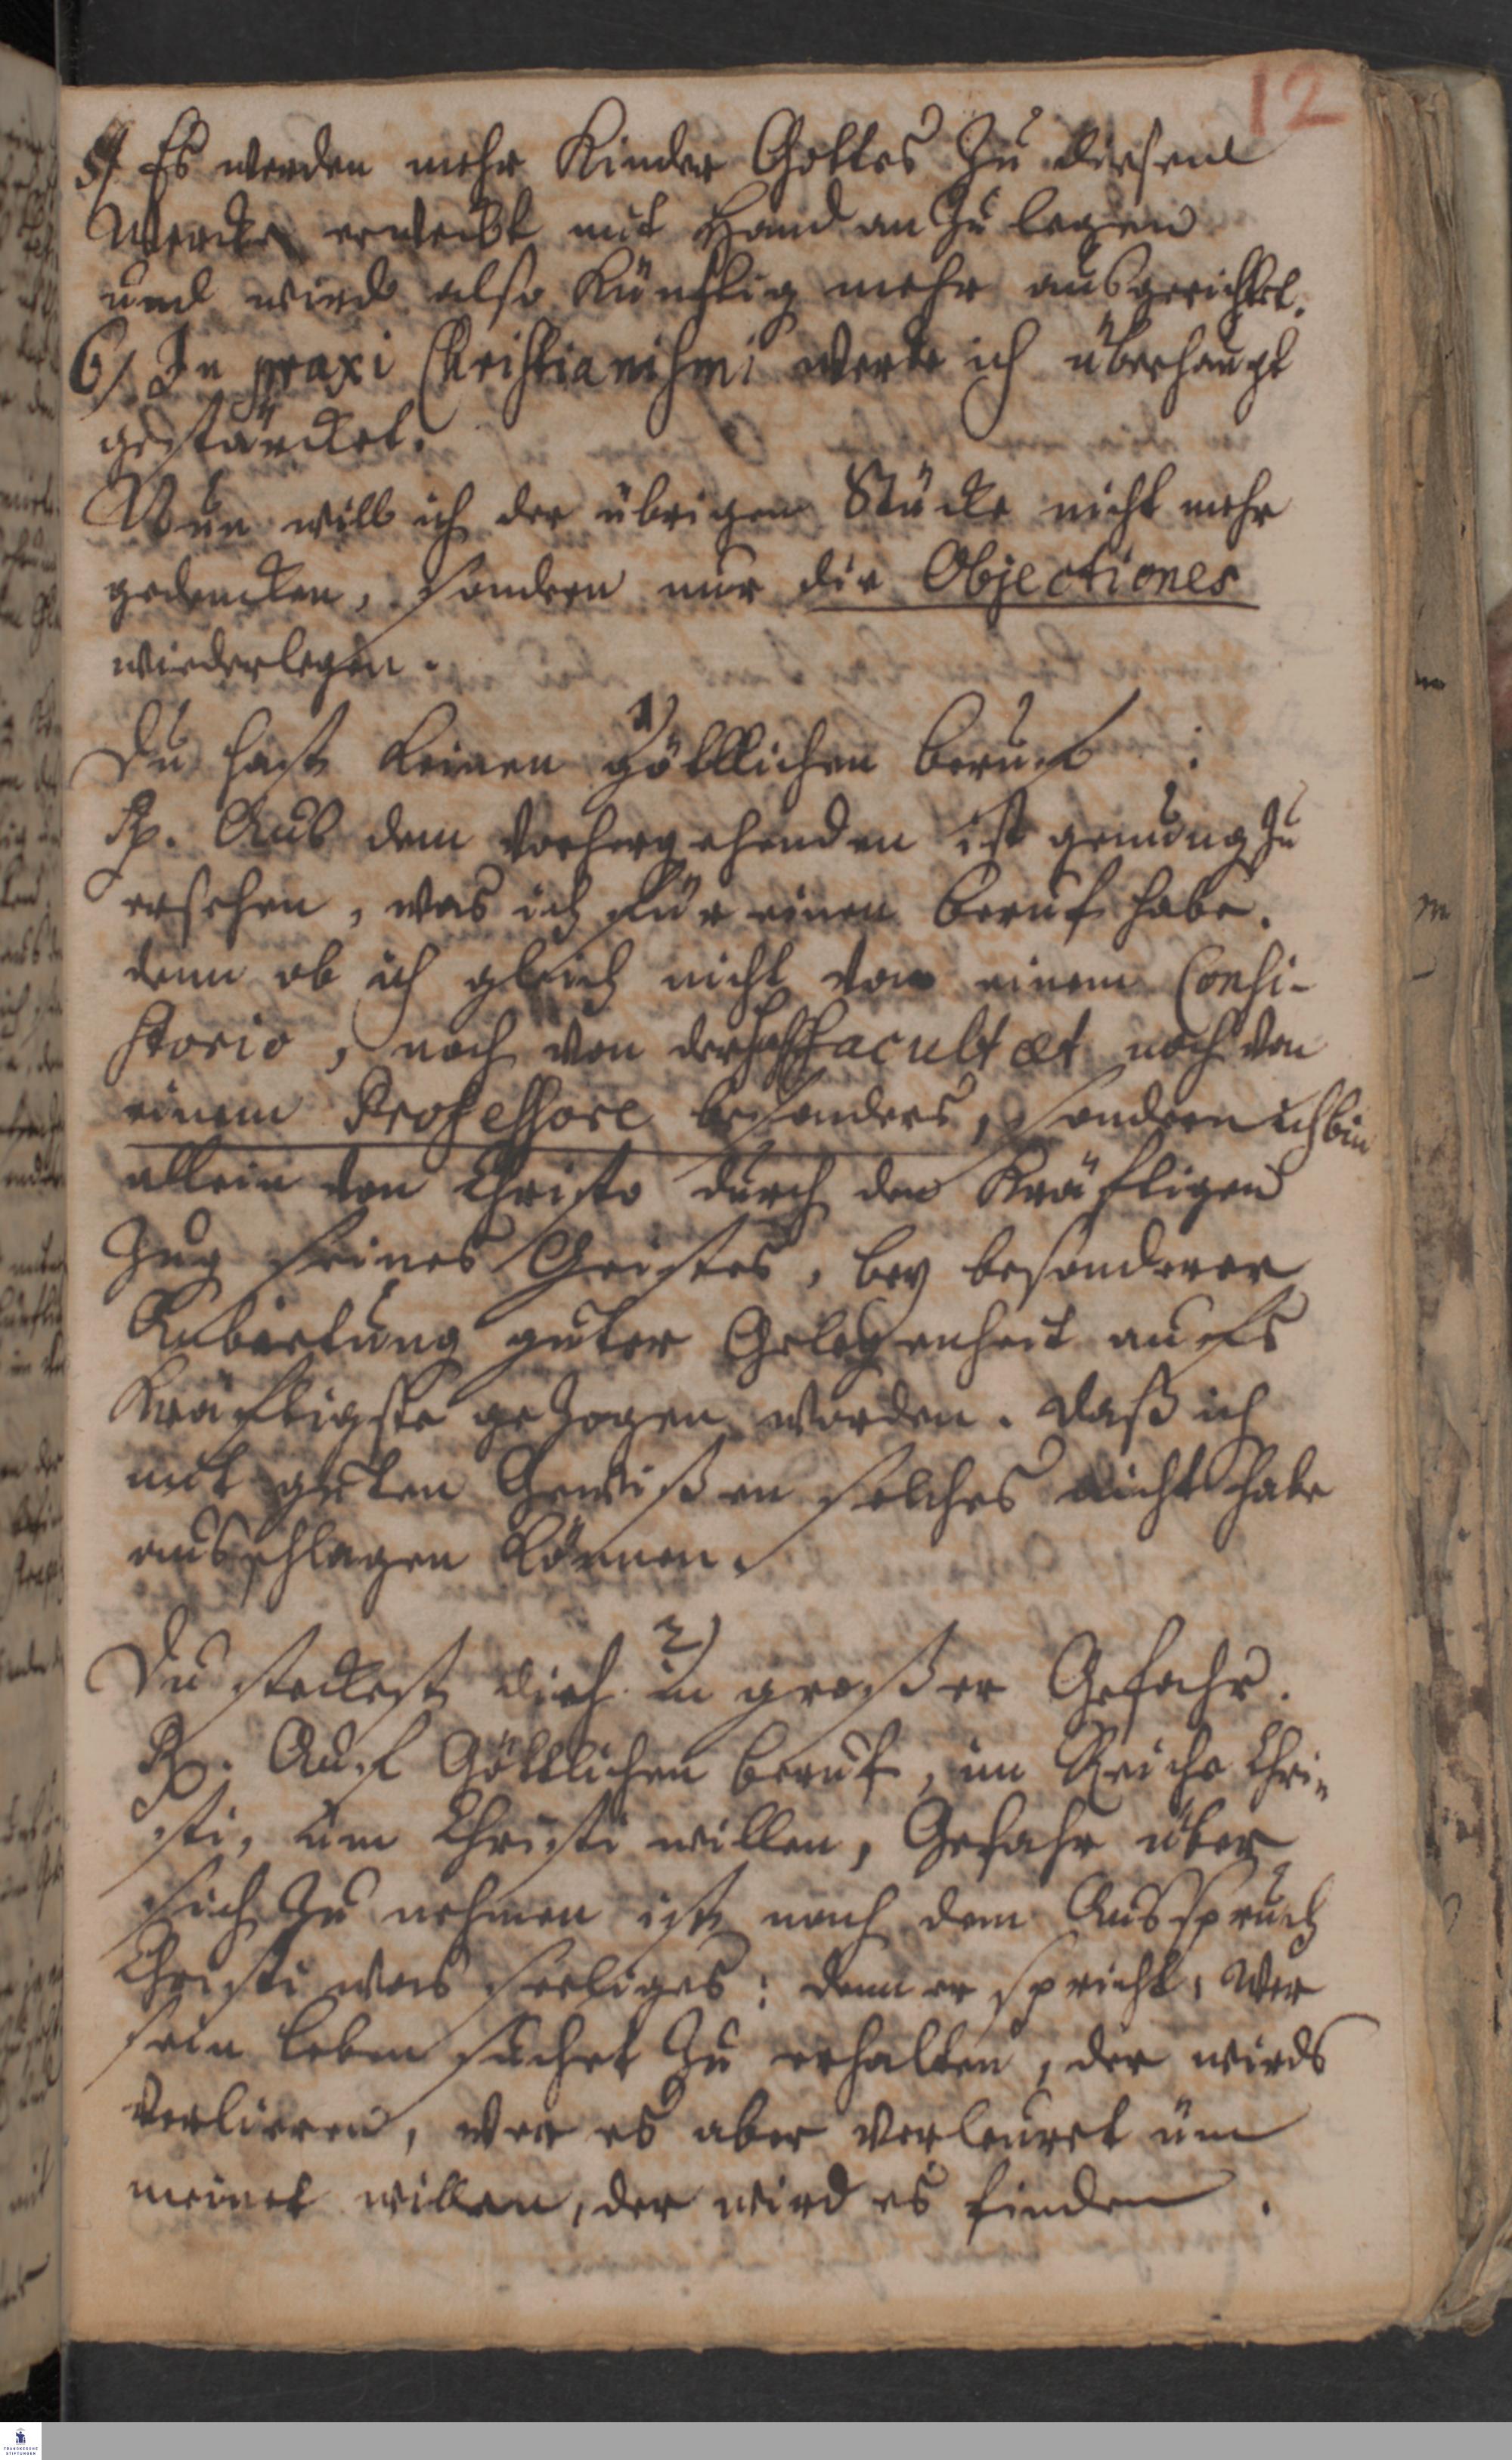 12
5/ Es werden mehr Kinder Gottes zu diesem
Wercke erweckt mit Hand an zu legen
und wird also künftig mehr ausgerichtet.
6/ In praxi Christianismi werde ich überhaupt
gestärcket.
Nun will ich der übrigen Stücke nicht mehr
gedencken, sondern nur die Objectiones
wiederlegen.
1)
Du hast keinen göttlichen beruf:
Rp. Aus dem vorhergehenden ist genung zu
ersehen, was ich für einen beruf habe.
denn ob ich gleich nicht von einem Consi-
storio, noch von der Facultæt noch von
einem Professore besonders, sondern ich bin
allein von Christo durch den kräftigen
Zug seines Geistes, bey besonderer
Anbietung guter Gelegenheit aufs
kräftigste gezogen worden. daß ich
mit guten Gewißen solches nicht habe
ausschlagen können.
2)
Du steckest dich in großer Gefahr.
Rp. Auf Göttlichen beruf, im Reiche Chri-
sti, um Christi willen, Gefahr über
sich zu nehmen ist nach dem Ausspruch
Christi was seeliges: denn er spricht, wer
sein leben suchet zu erhalten, der wirds
verlieren, wer es aber verleuret um
meinet willen, der wird es finden.
FRANCKESCHE
STIFTUNGEN